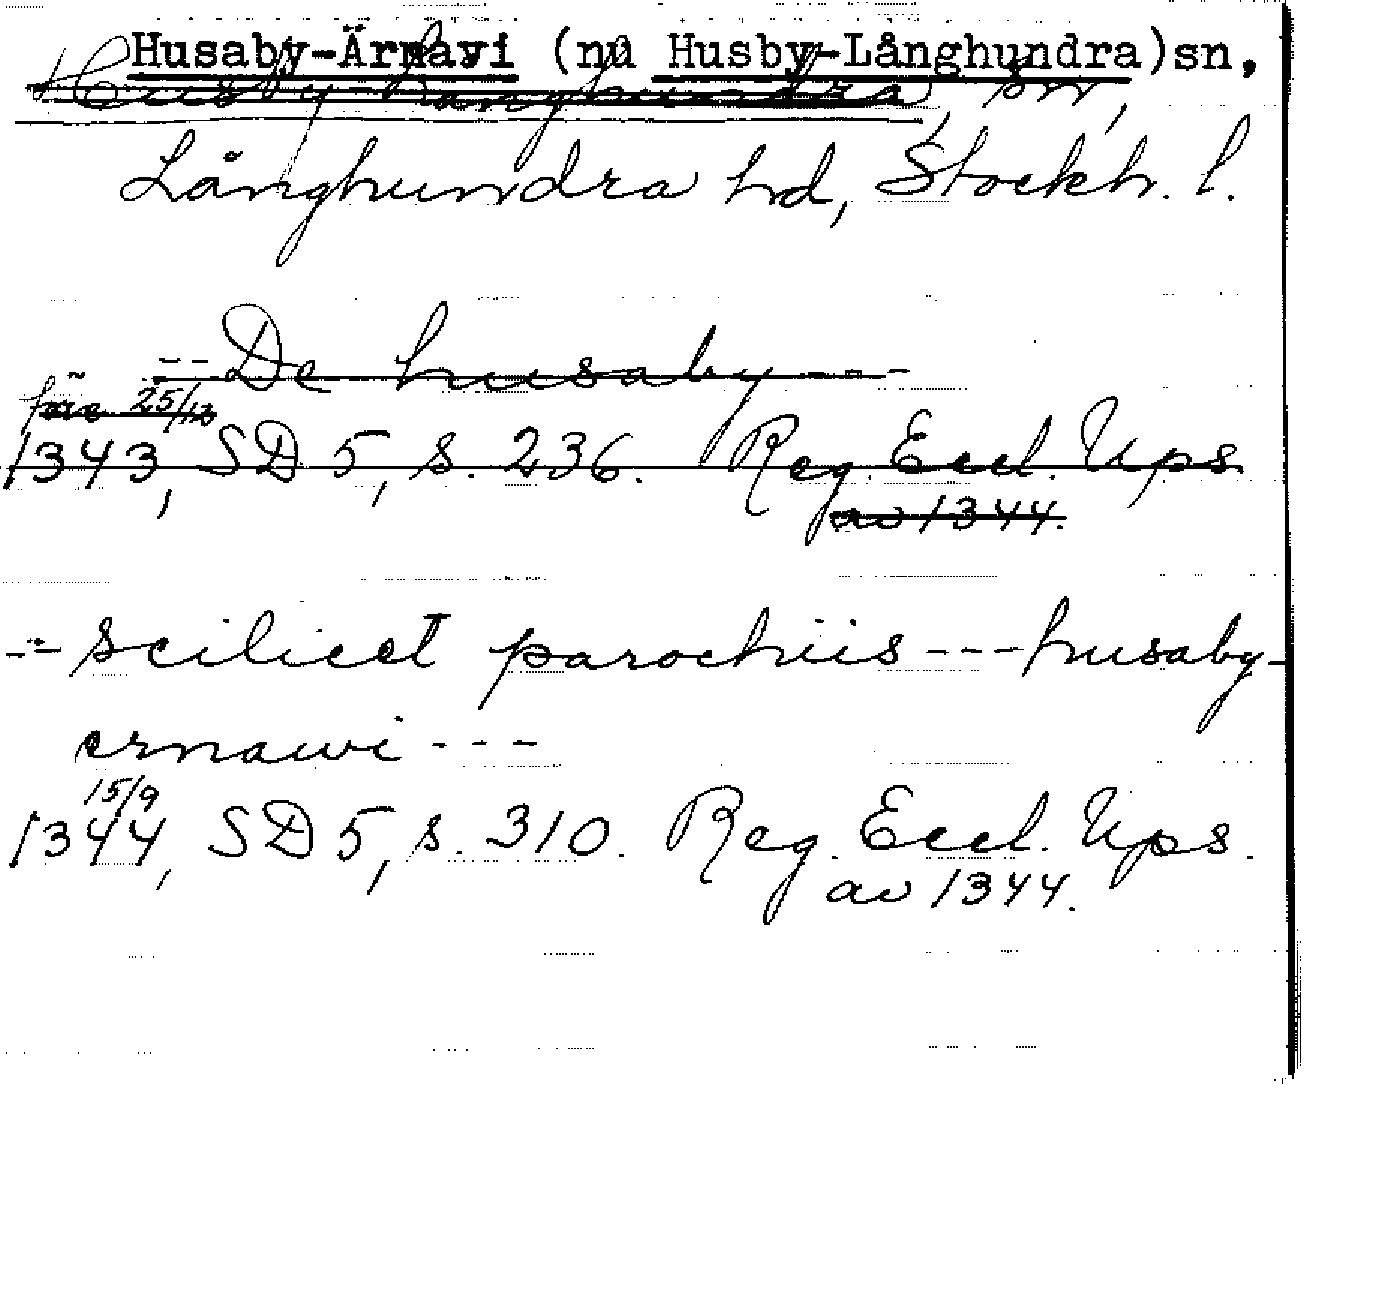 Husaby-Ärnavi (nu Husby-Långhundra)sn,
Husby-Långhundra, sn,
Långhundra hd, Stockh. l.
-- De husaby ---
före 25/12
1343, SD 5, s. 236. Reg. Eccl. Ups.
av 1344.
-- scilicet parochiis --- husaby-
ernawi ---
15/9
1344, SD 5, s. 310. Reg. Eccl. Ups.
av 1344.